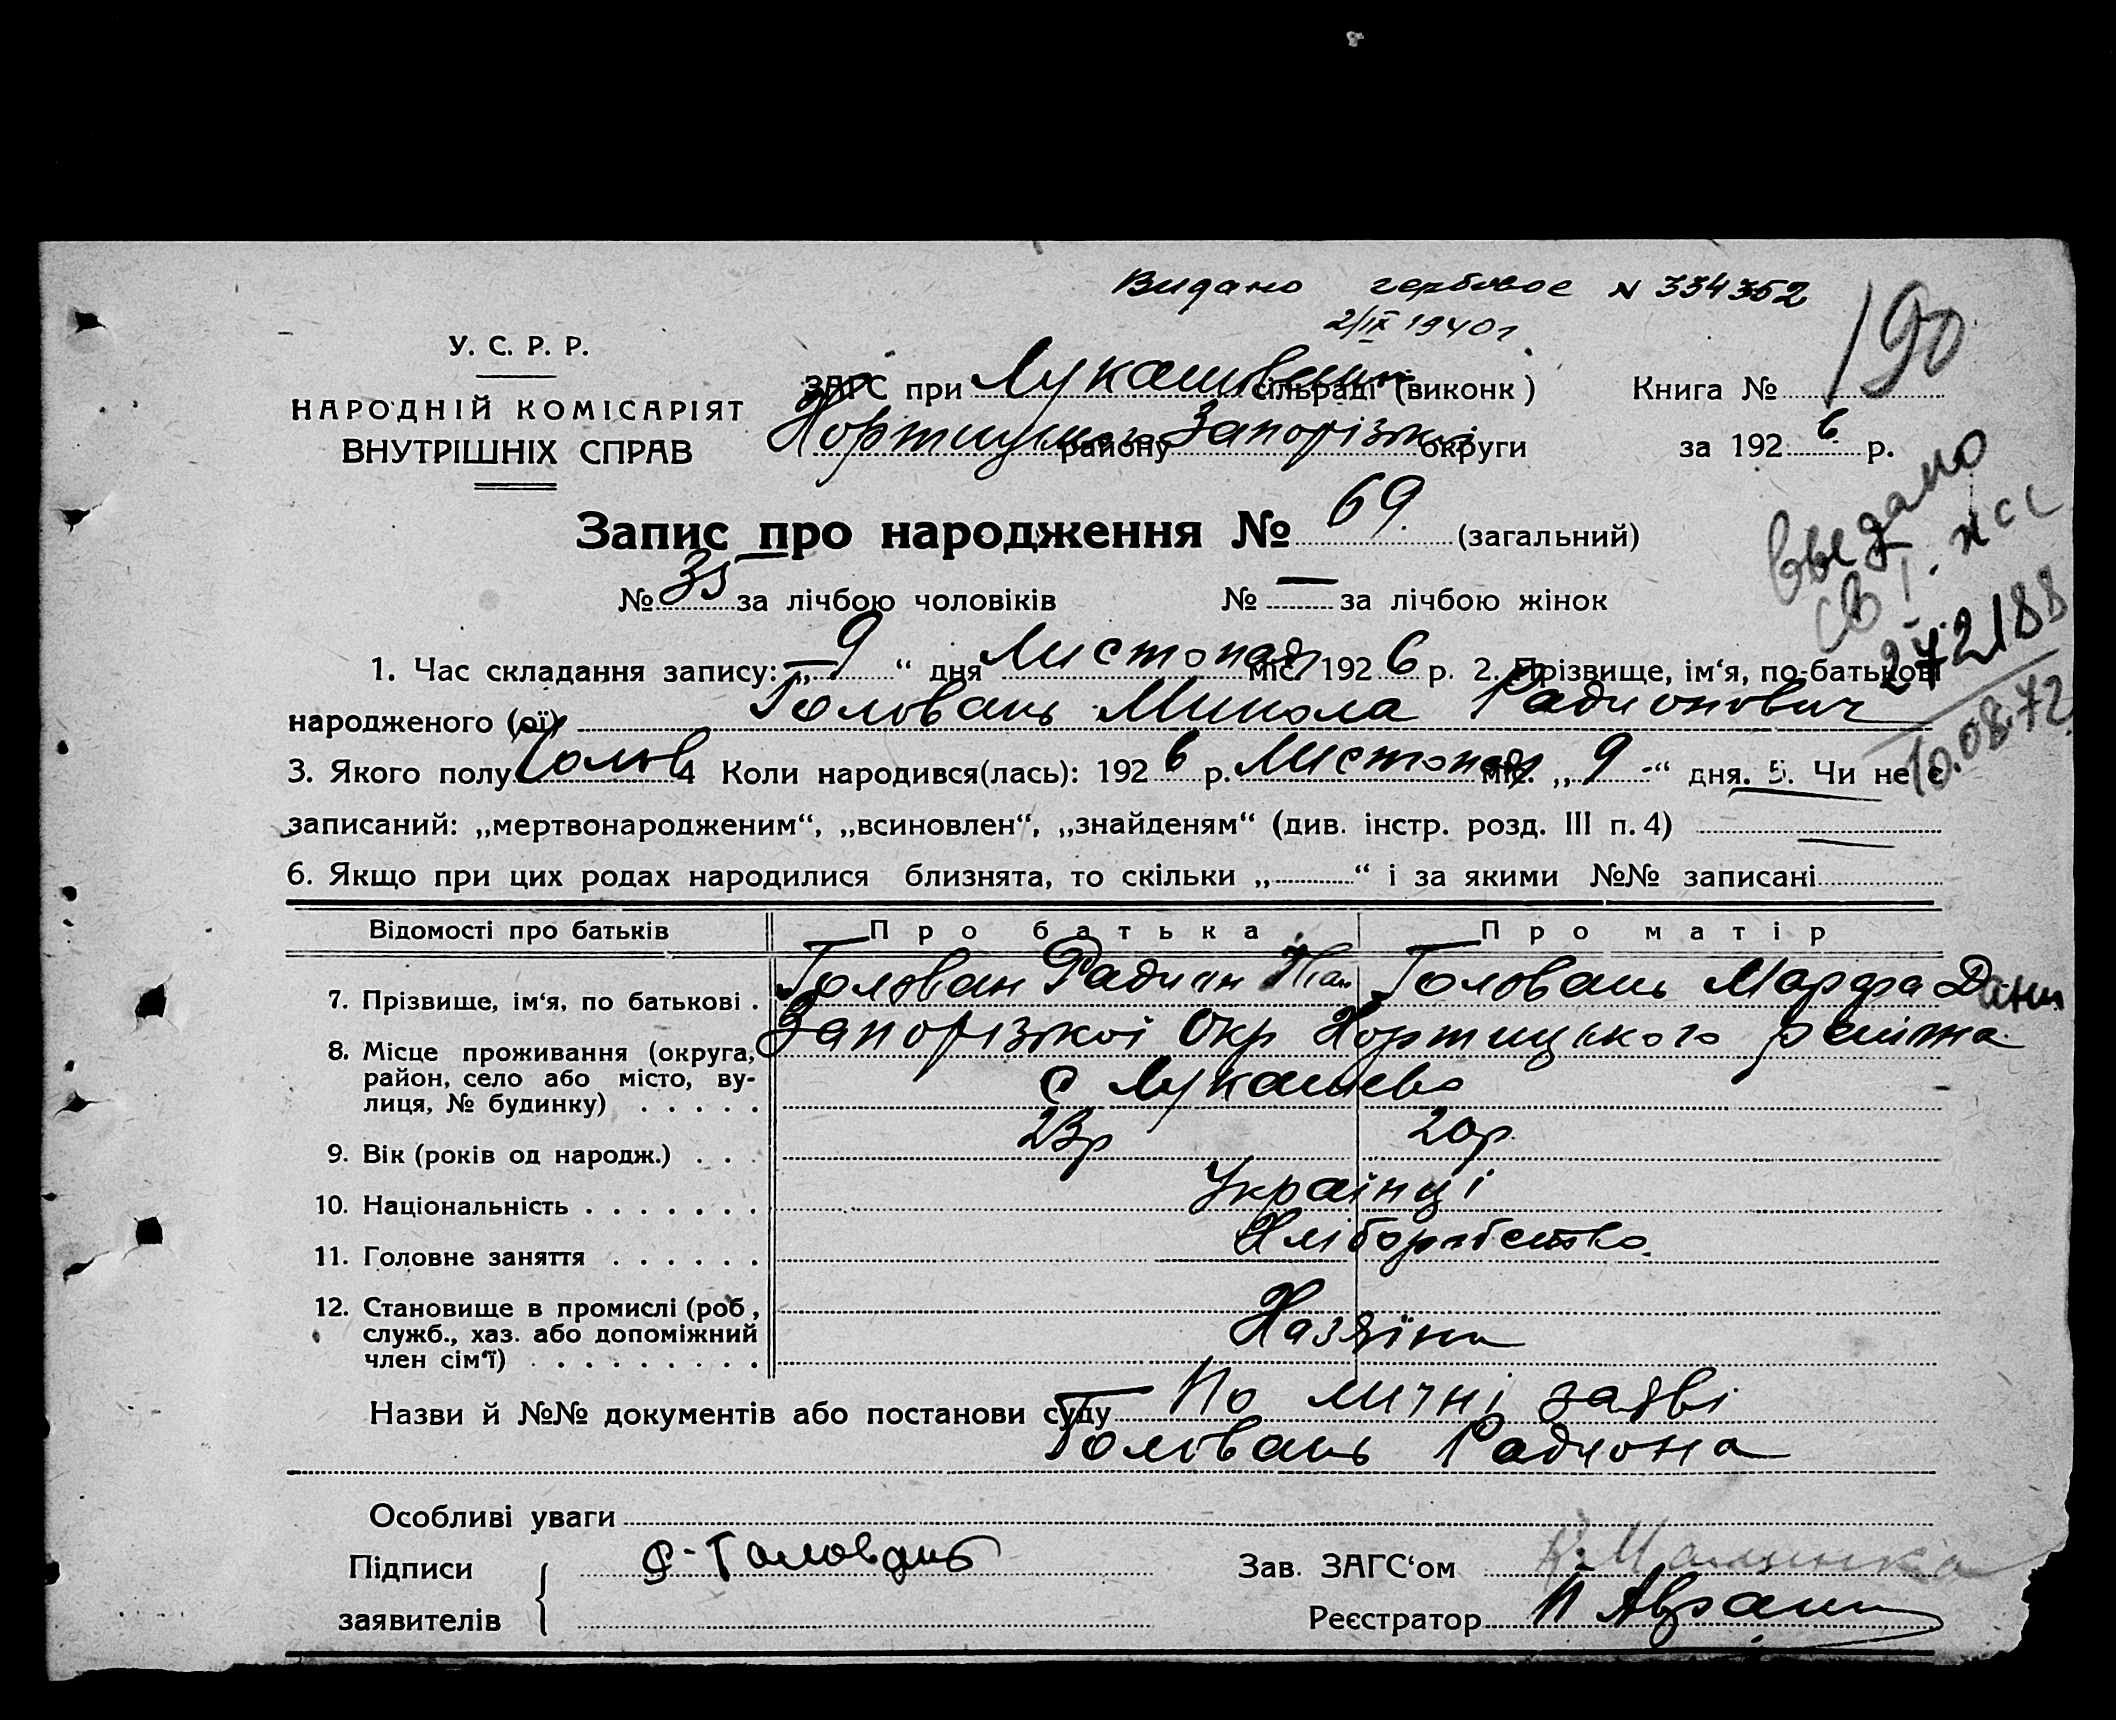 Видано гербовое № 334352
2/IX 1940 г
190
У. С. Р. Р.
НАРОДНІЙ КОМІСАРІЯТ
ВНУТРІШНІХ СПРАВ
ЗАГС при сільраді (виконк) Книга №
району Запорізької округи за 1926 р.
Запис про народження № 69. (загальний)
№ 35 за лічбою чоловіків № — за лічбою жінок
видано
св.
272188
10.08.72
1. Час складання запису: „9“ дня Листопад міс. 1926 р. 2. Прізвище, ім‘я, по-батькові
народженого (ої) Головань Микола Радионович
3. Якого полу Чолов 4 Коли народився(лась): 1926 р. Листопад міс. „9“ дня. 5. Чи не є
записаний: „мертвонародженим“, „всиновлен“, „знайденям“ (див. інстр. розд. III п. 4)
6. Якщо при цих родах народилися близнята, то скільки „ “ і за якими №№ записані
Відомості про батьків Про батька Про матір
7. Прізвище, ім‘я, по батькові . Голован Радион Головань Марфа
8. Місце проживання (округа, Запорізкої Окр Хортицького
район, село або місто, ву-
лиця, № будинку) . . . . . с Лукашево
9. Вік (років од народж.) . . . 23р 20р.
10. Національність . . . . . . . Українці
11. Головне заняття . . . . . . Хліборобство
12. Становище в промислі (роб,
служб., хаз. або допоміжний Хазяїни
член сім‘ї) . . . . . . . . .
Назви й №№ документів або постанови суду По личні заяві
Головань Радиона
Особливі уваги
Підписи Головань Зав. ЗАГС‘ом
заявителів Реєстратор